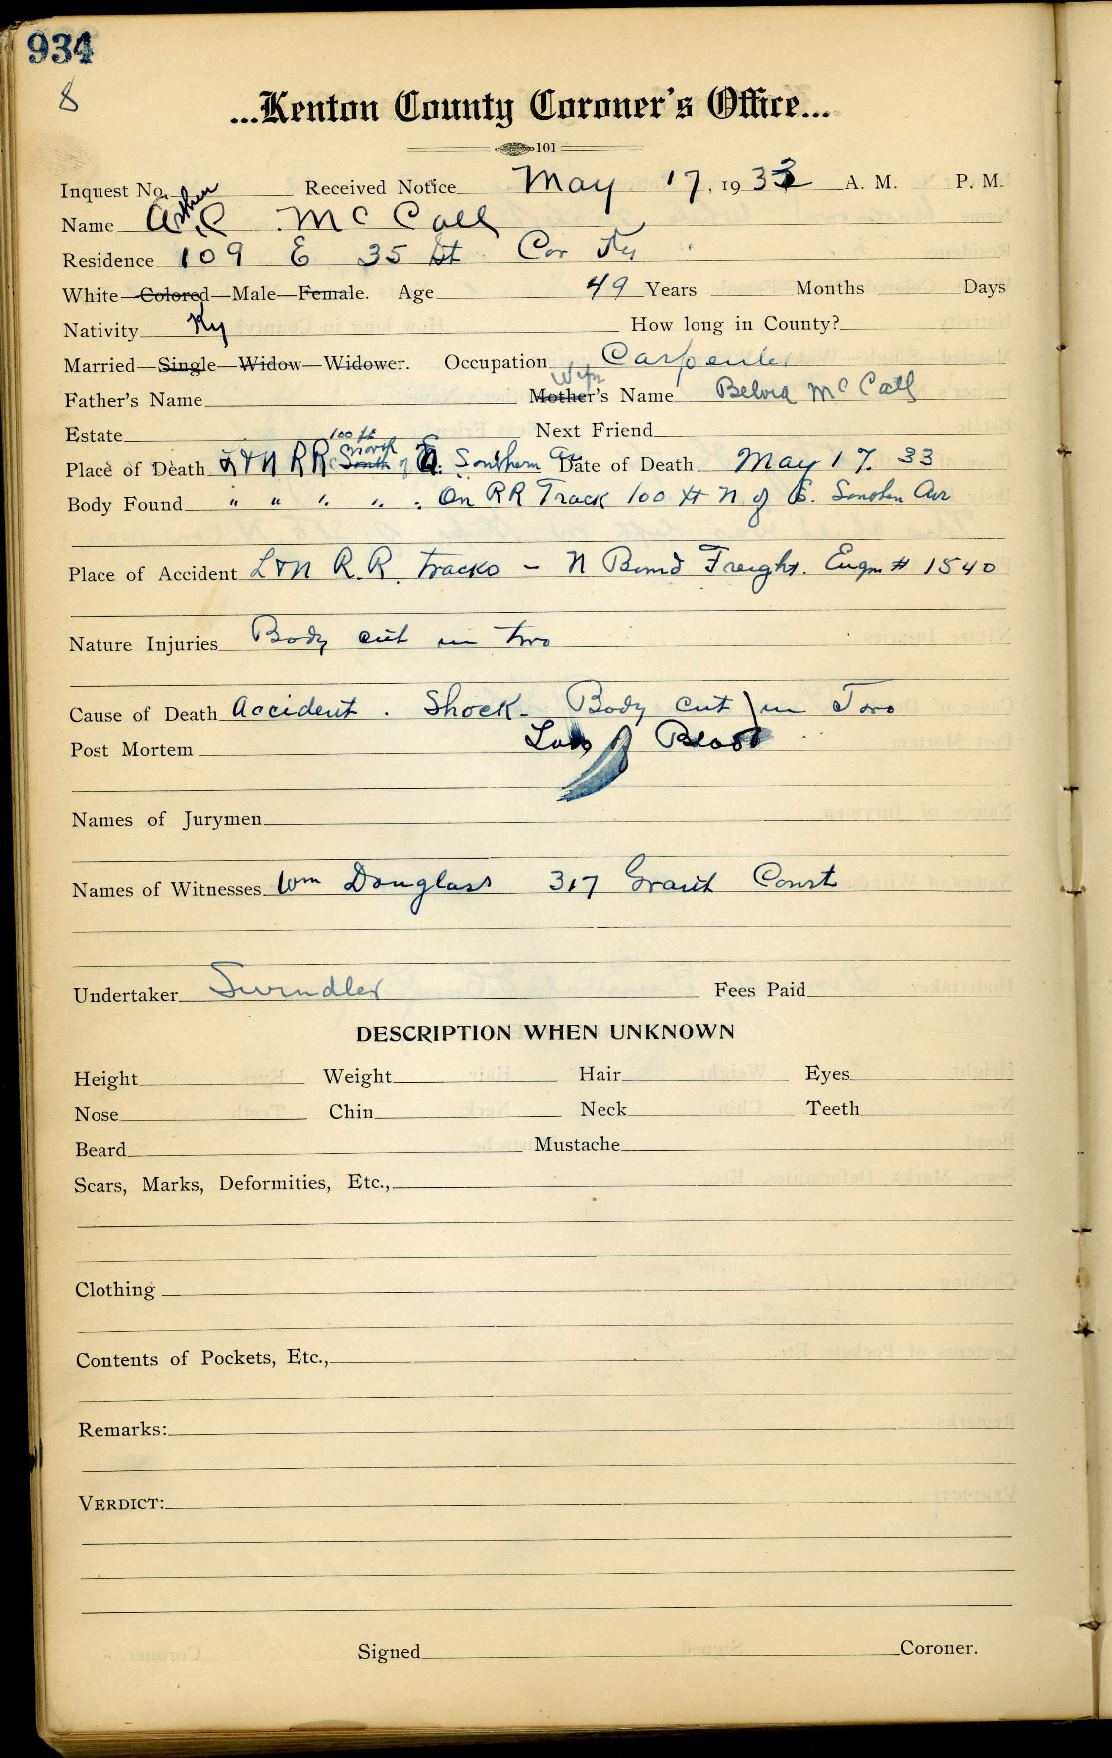 934
8
...Kenton County Coroner's Office...
101
Inquest No. Received Notice May 17, 1933 A. M. P. M.
Arthur
Name A.C. McCall
Residence 109 E 35 St Cov Ky
White—Colored—Male—Female. Age 49 Years Months Days
Nativity Ky How long in County?
Married—Single—Widow—Widower. Occupation Carpenter
Wife
Father's Name Mother's Name Belvia McCall
Estate Next Friend
100 ft North
Place of Death L&N RR South of E. Southern Av Date of Death May 17. 33
Body Found " " " " . On RR Track 100 ft N of E. Southern Ave
Place of Accident L&N R.R. tracks - N Bound Freight. Engn # 1540
Nature Injuries Body cut in two
Cause of Death Accident . Shock - Body cut in Two
Loss of Blood
Post Mortem
Names of Jurymen
Names of Witnesses Wm Douglass 317 Grant Court
Undertaker Swindler Fees Paid
DESCRIPTION WHEN UNKNOWN
Height Weight Hair Eyes
Nose Chin Neck Teeth
Beard Mustache
Scars, Marks, Deformities, Etc.,
Clothing
Contents of Pockets, Etc.,
Remarks:
VERDICT:
Signed Coroner.